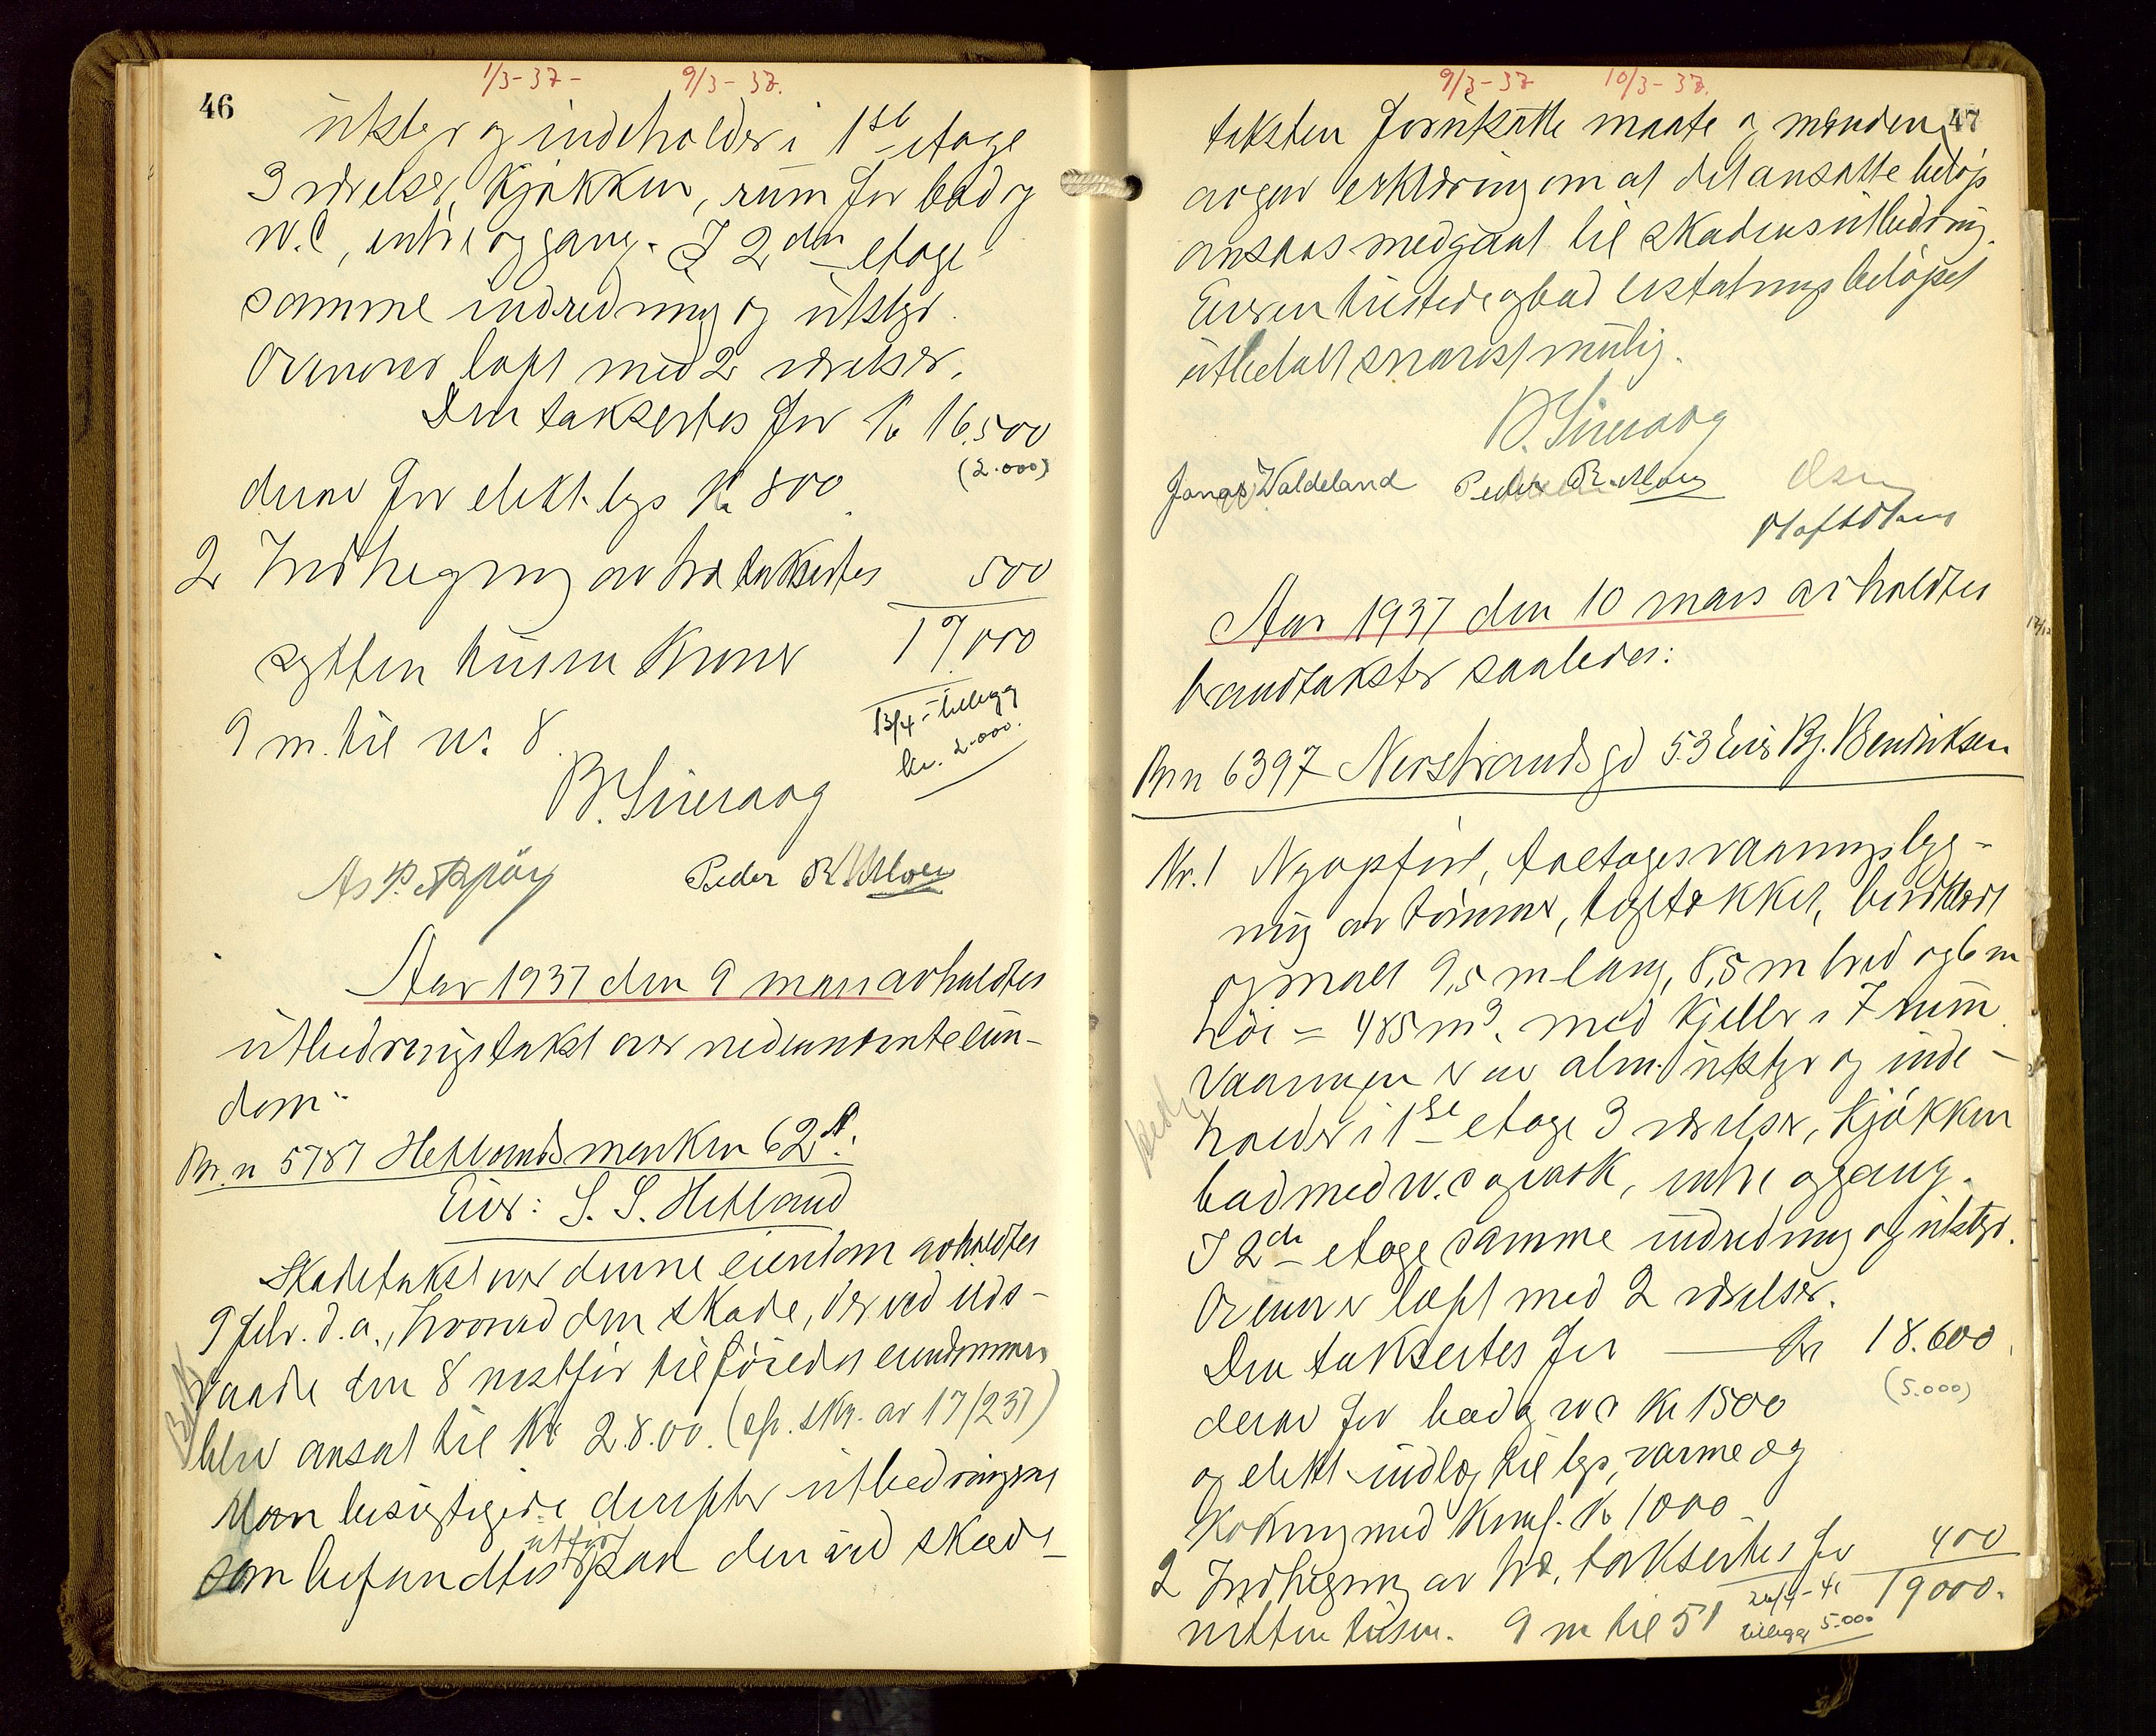 46
1/3-37- 9/3-37.
utstyr og indeholder i 1ste etage
3 værelser, kjøkken, rum for bad og
W.C, entre og gang. I 2den etage
samme indredning og utstyr.
Ovenover loft med 2 værelser.
Den taksertes for kr 16.500
(2.000)
derav for elekt. lys kr 800.
2 Indhegning av træ taksertes 500
sytten tusen kroner 17.000
13/4 - tillegg
kr. 2.000.
9 m. til nr. 8.
Peder R. Moen
Aar 1937 den 9 mars avholdtes
utbedringstakst over nedennævnte eien-
dom:
Br. n 5787 Hetlandsmarken 62 A.
Eier: S. S. Hetland
Skadetakst over denne eiendom avholdtes
9 febr. d.a., hvorved den skade, der ved ilds-
vaade den 8 næstfør tilføiedes eiendommen
blev ansat til kr 28.00. (cfr. skr. av 17/2 37)
Man besigtigede derefter utbedringene
som befandtes utført paa den ved skade-
47
9/3-37 10/3-37.
taksten forutsatte maate og mændene
avgav erklæring om at det ansatte beløp
ansaas medgaat til skadens utbedring.
Eieren tilstede og bad erstatningsbeløpet
utbetalt snarest mulig.
Jonas Waldeland Peder R. Moen Olsen
Olaf Olsen
Aar 1937 den 10 mars avholdtes
brandtakster saaledes:
Br n 6397 Nerstrandsgd 53 Eier Bj. Bendiksen
Nr. 1 Nyopført, toetages vaaningsbyg-
ning av tømmer, teglstækket, bordklædt
og malt 9,5 m lang, 8,5 m bred og 6 m
høi = 485 m3. med kjeller i 7 rum.
Vaaningen er av alm. utstyr og inde-
holder i 1ste etage 3 værelser, kjøkken
bad med w.c og vask, entre og gang.
I 2den etage samme indredning og utstyr.
Ovenover loft med 2 værelser.
Den taksertes for — kr 18.600
(5.000)
derav for bad og w c kr 1500
og elekt. indlæg til lys, varme og
kokning med komf. kr 1000
2 Indhegning av træ, taksertes for 400
nitten tusen. 9 m til 51 19000.
tillegg 5.000